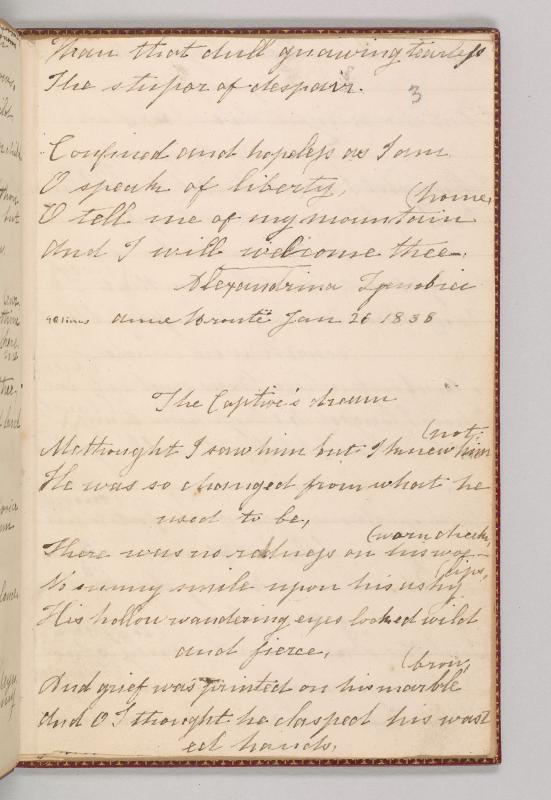 Than that dull gnawing tearless
The stupor of despair.
3
Confined and hopeless as I am
O speak of liberty,
(home,
O tell me of my mountain
And I will welcome thee—.
Alexandrina Zenobia
48 lines Anne Brontë Jan 26 1838
The Captive's dream
(not
Methought I saw him but I knew him
He was so changed from what he
used to be,
(worn cheek,
There was no redness on his woe-
(lips,
No sunny smile upon his ashy
His hollow wandering eyes looked wild
and fierce,
(brow,
And grief was printed on his marble
And O I thought he clasped his wast
ed hands,